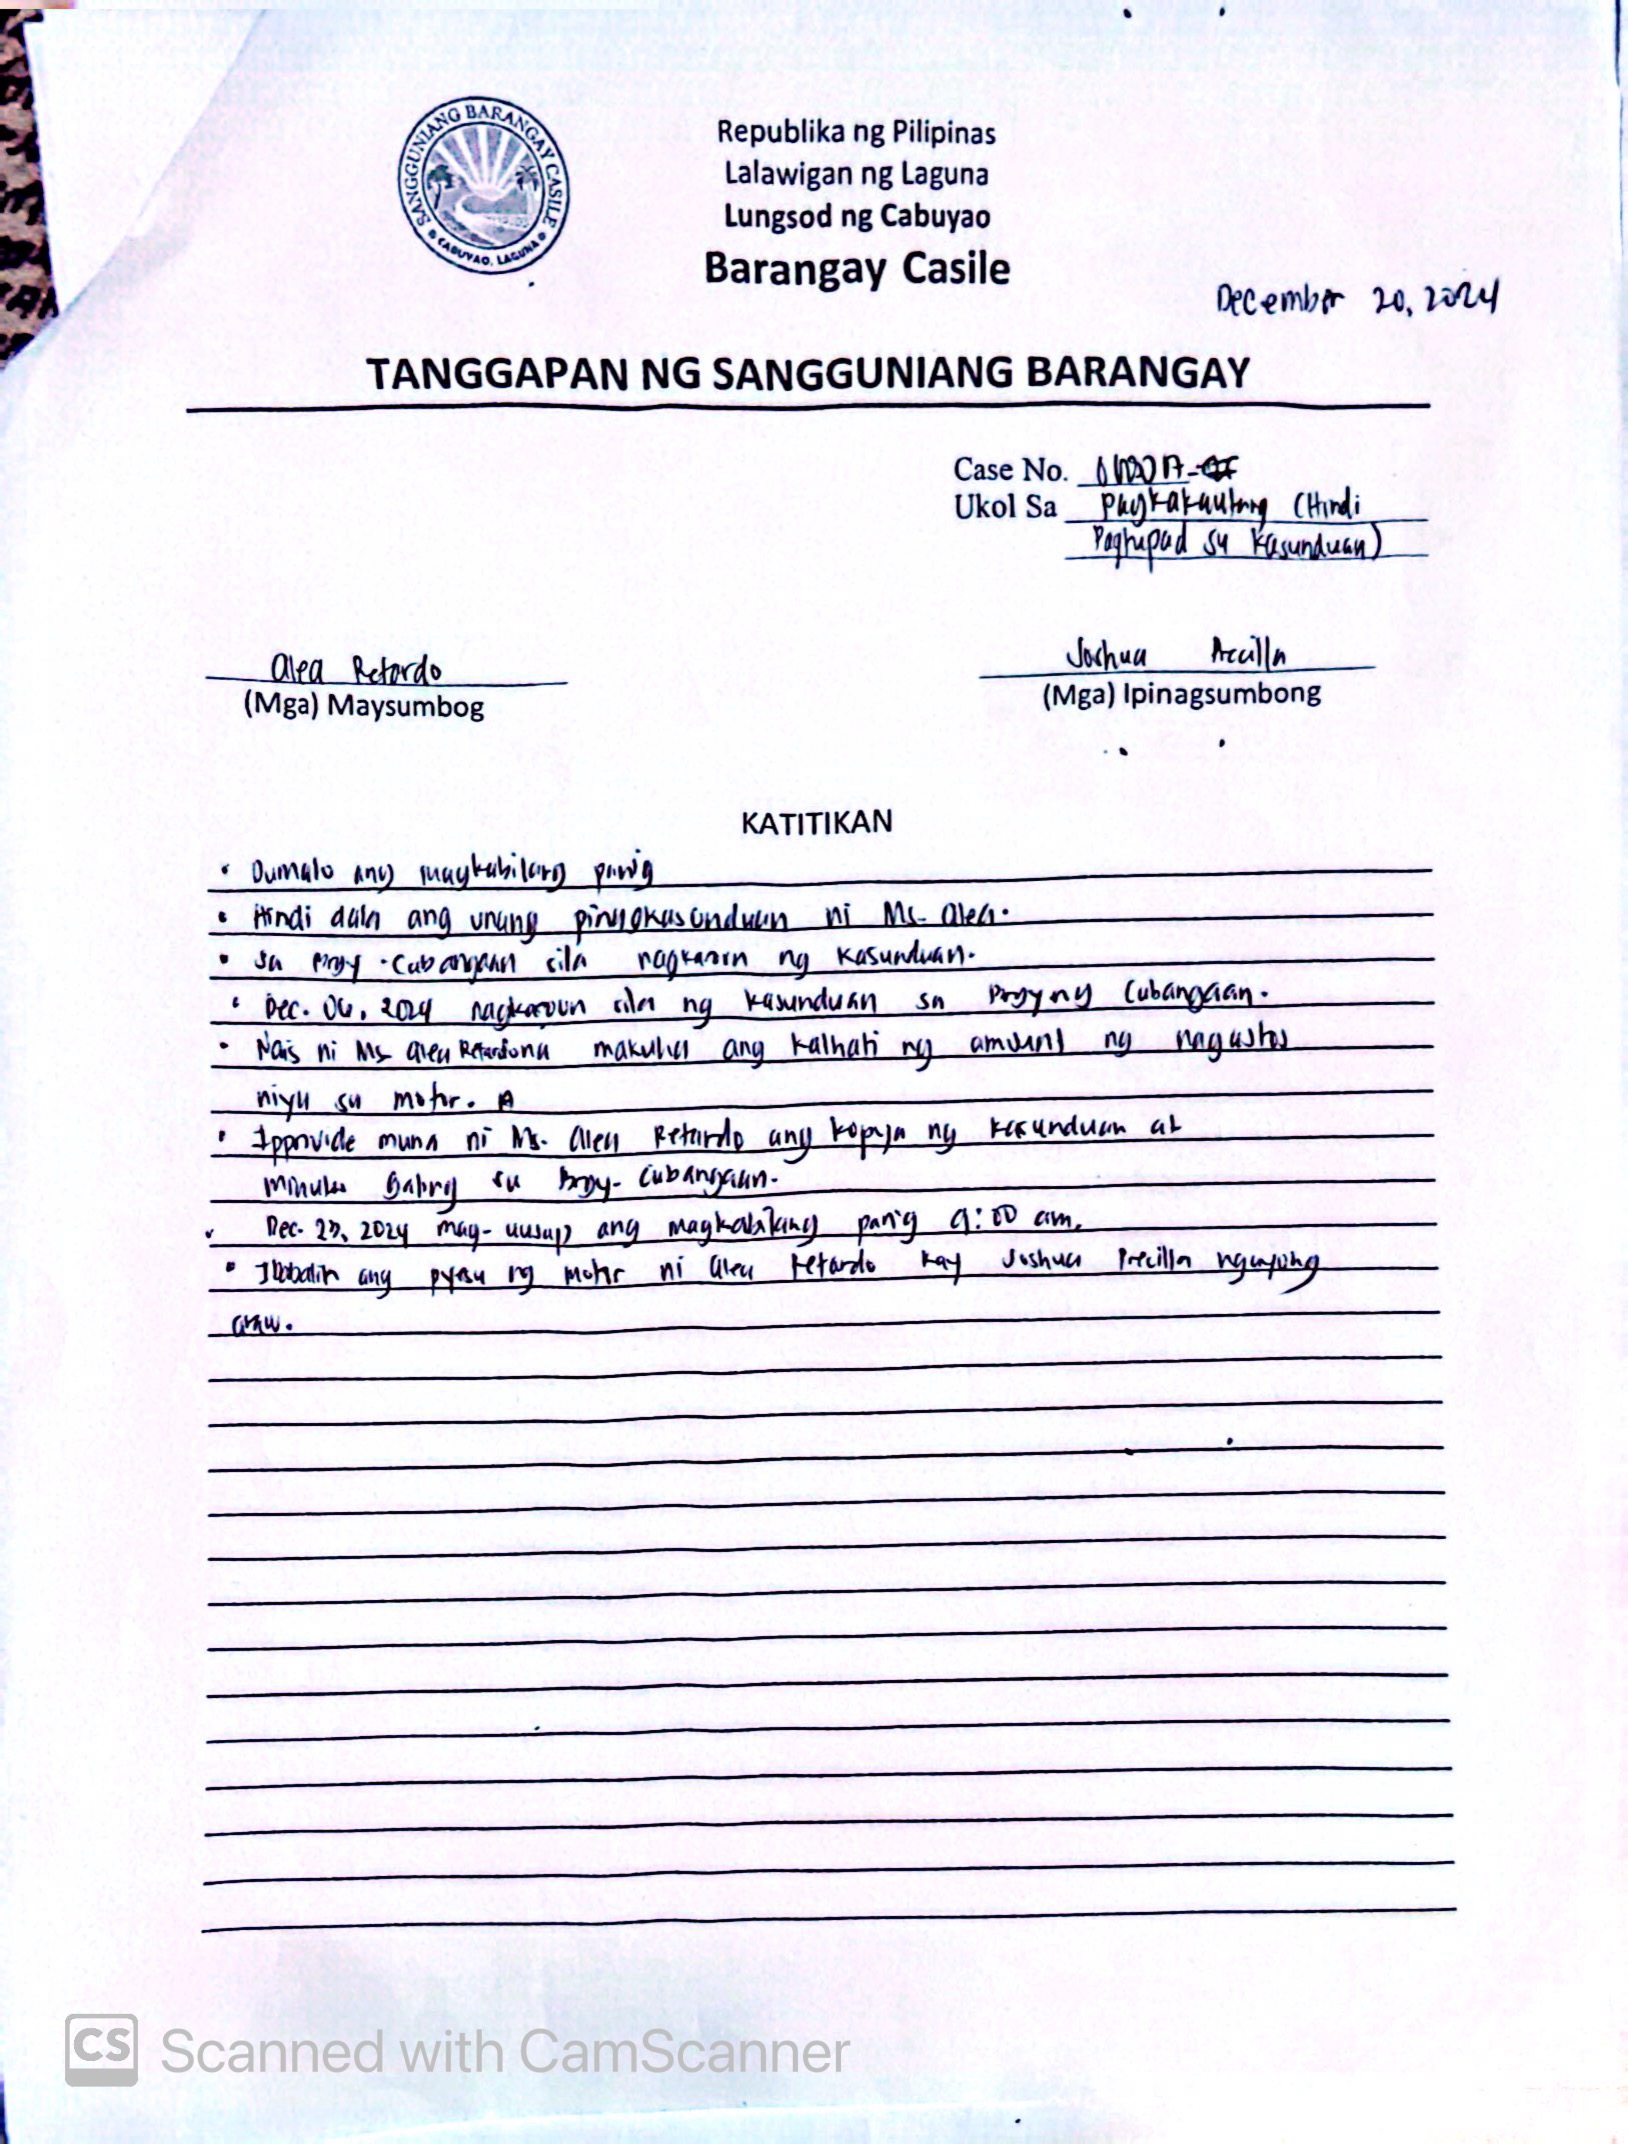 SANGGUNIANG BARANGAY CASILE
CABUYAO, LAGUNA
Republika ng Pilipinas
Lalawigan ng Laguna
Lungsod ng Cabuyao
Barangay Casile
December 20, 2024
TANGGAPAN NG SANGGUNIANG BARANGAY
Case No.
Ukol Sa Pagkakautang (Hindi
Pagtupad sa Kasunduan)
Alea Retardo
(Mga) Maysumbog
Joshua
(Mga) Ipinagsumbong
KATITIKAN
• Dumalo ang magkabilang panig
• Hindi dala ang unang pinagkasunduan ni Ms. Alea.
• Sa Brgy. Cabangaan sila nagkaroon ng kasunduan.
• Dec. 06, 2024 nagkaroon sila ng kasunduan sa Cabangaan.
• Nais ni Ms. Alea Retardo na makuha ang kalhati ng amount ng nagastos
niya sa motor.
• Ipprovide muna ni Ms. Alea Retardo ang kopya ng kasunduan at
minutes galing sa Brgy. Cabangaan.
Dec. 27, 2024 mag-uusap ang magkabilang panig 9:00 am.
• Ibabalik ang pyesa ng motor ni Alea Retardo kay Joshua ngayong
araw.
CS Scanned with CamScanner